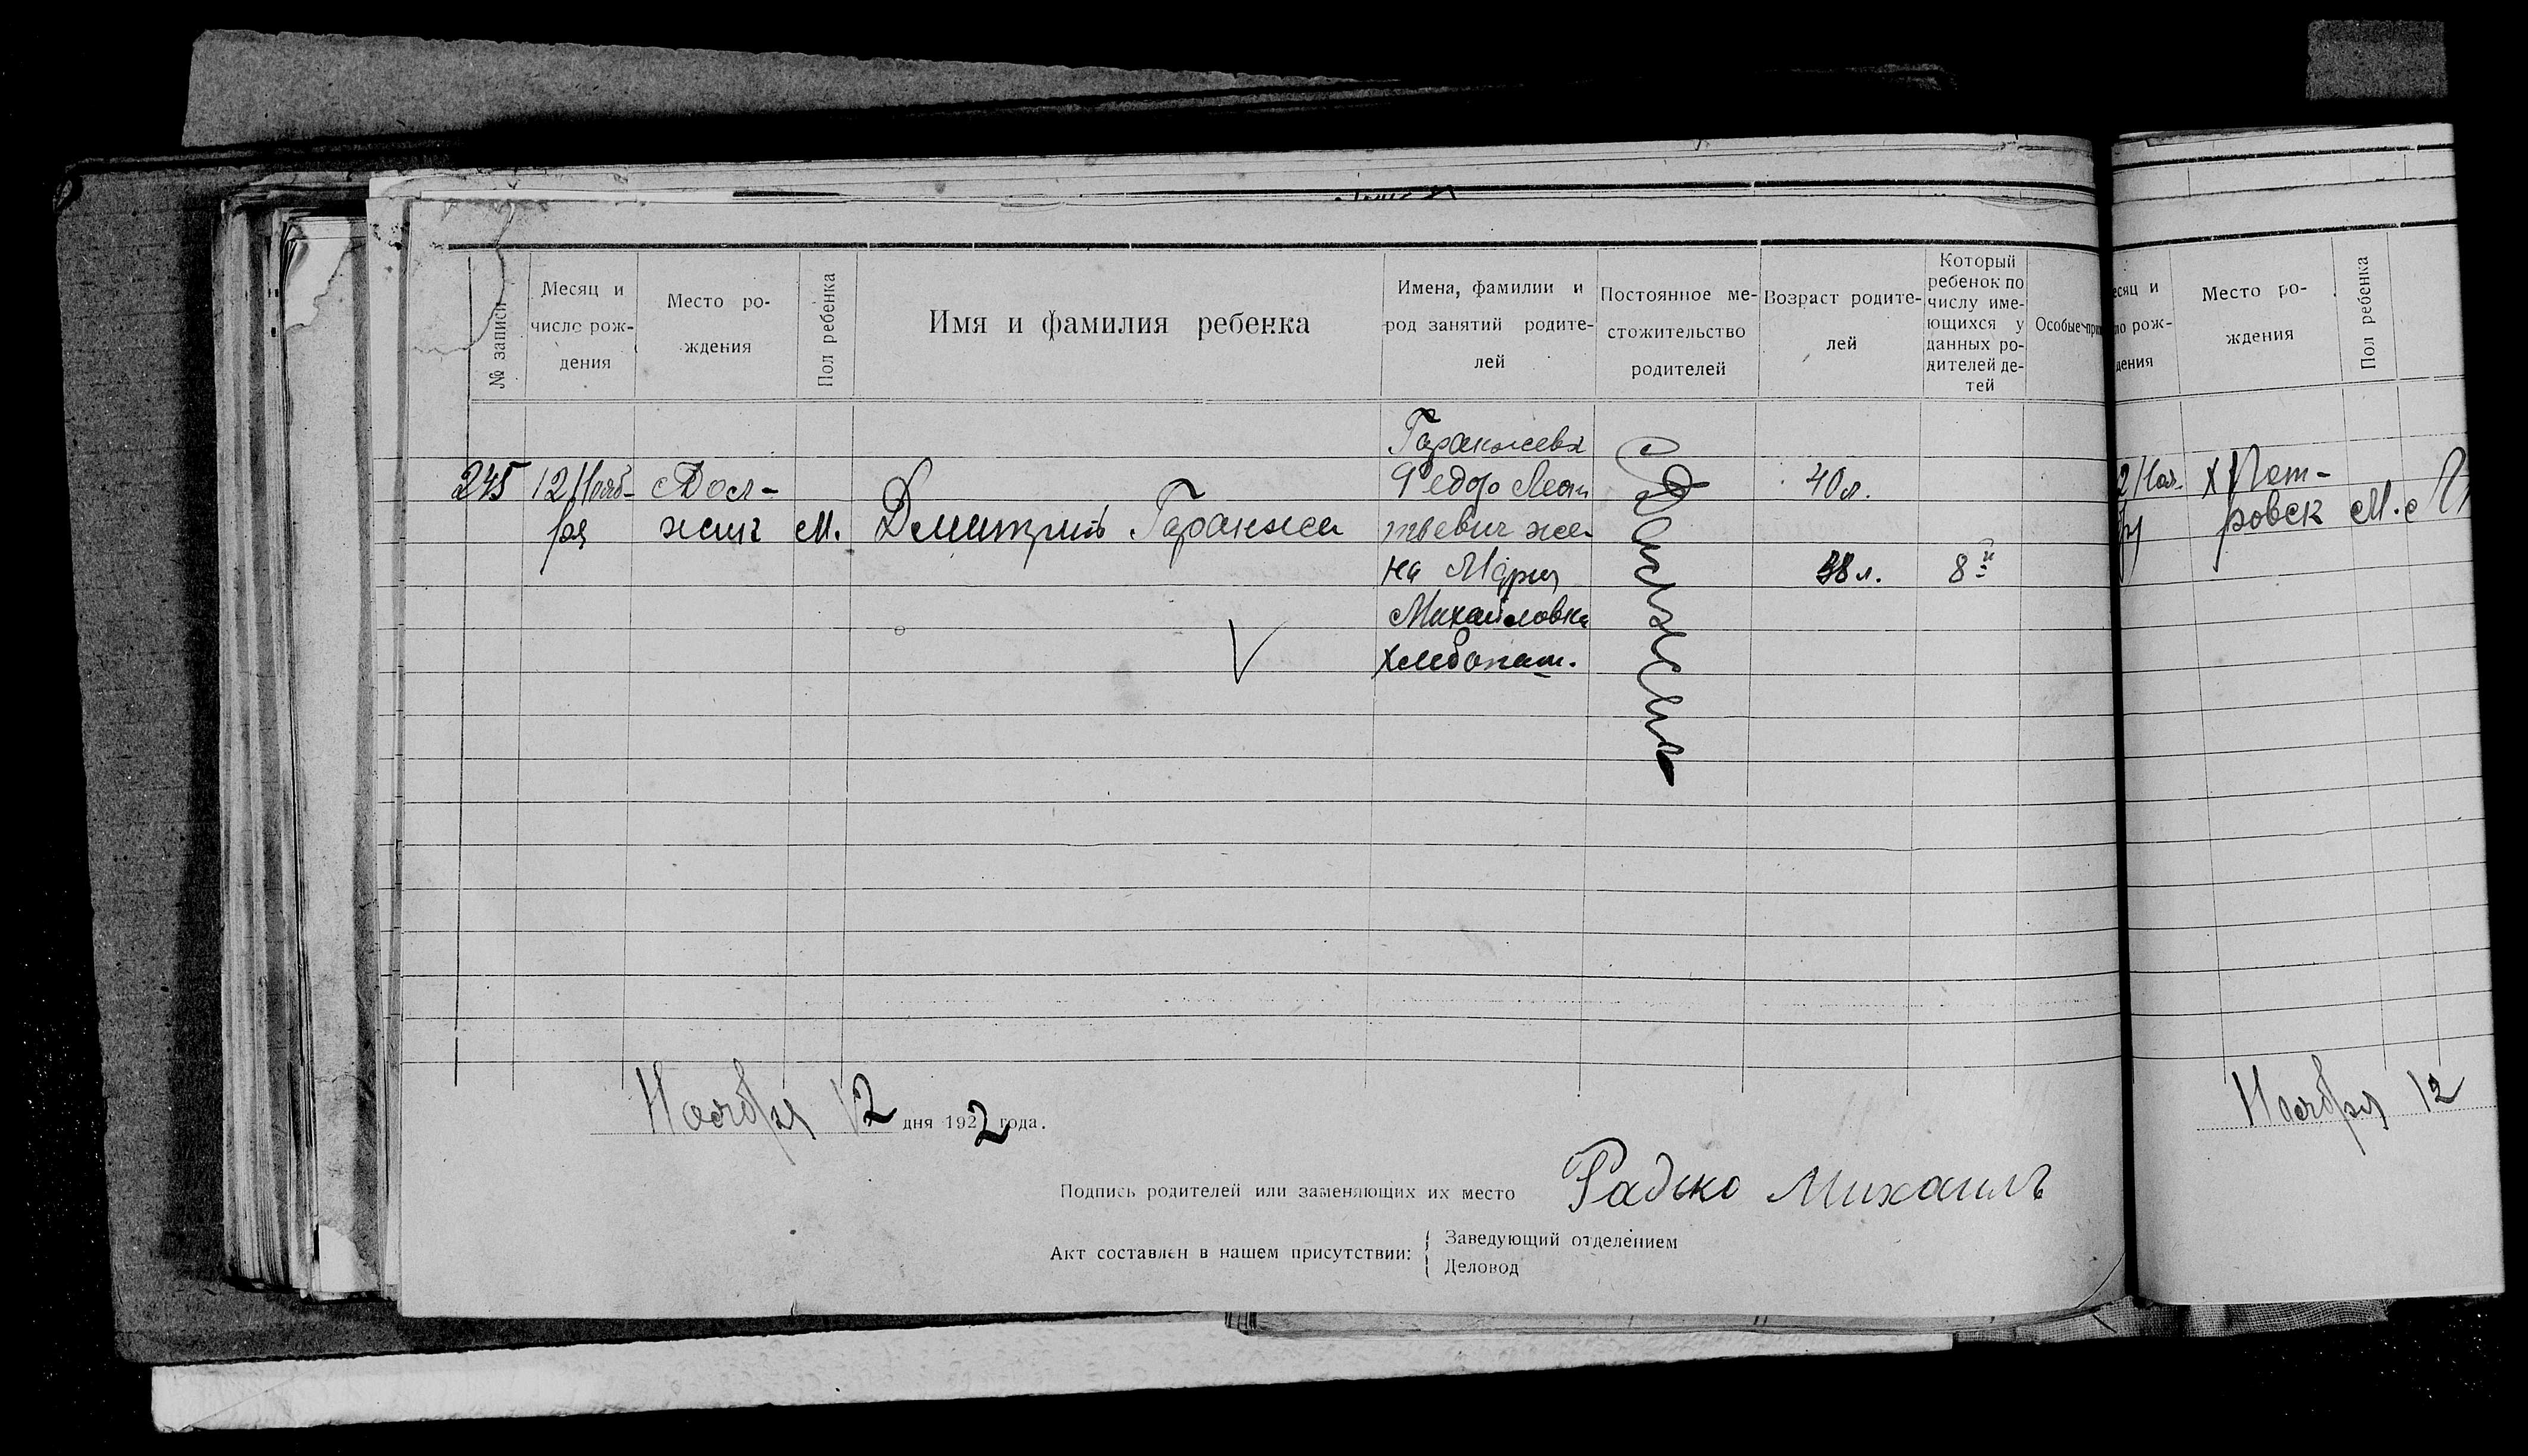 № записи
Месяц и
число рож-
дения
Место ро-
ждения
Пол ребенка
Имя и фамилия ребенка
Имена, фамилии и
род занятий родите-
лей
Постоянное ме-
стожительство
родителей
Возраст родите-
лей
Который
ребенок по
числу име-
ющихся у
данных ро-
дителей де-
тей
Особые при
245
12 Нояб-
ря
М.
Дмитрий Гаранжа
Гаранжевы
Федор Леон
тьевич же-
на Мария
Михайловна
Хлебопаш.
40 л.
38 л.
8й
Ноября 12 дня 1922 года.
Подпись родителей или заменяющих их место Радько Михаилъ
Акт составлен в нашем присутствии:
Заведующий отделением
Деловод
есяц и
ло рож-
дения
Место ро-
ждения
Пол ребенка
2 Ноя-
ря
х Пет-
ровск
М.
Ноября 12